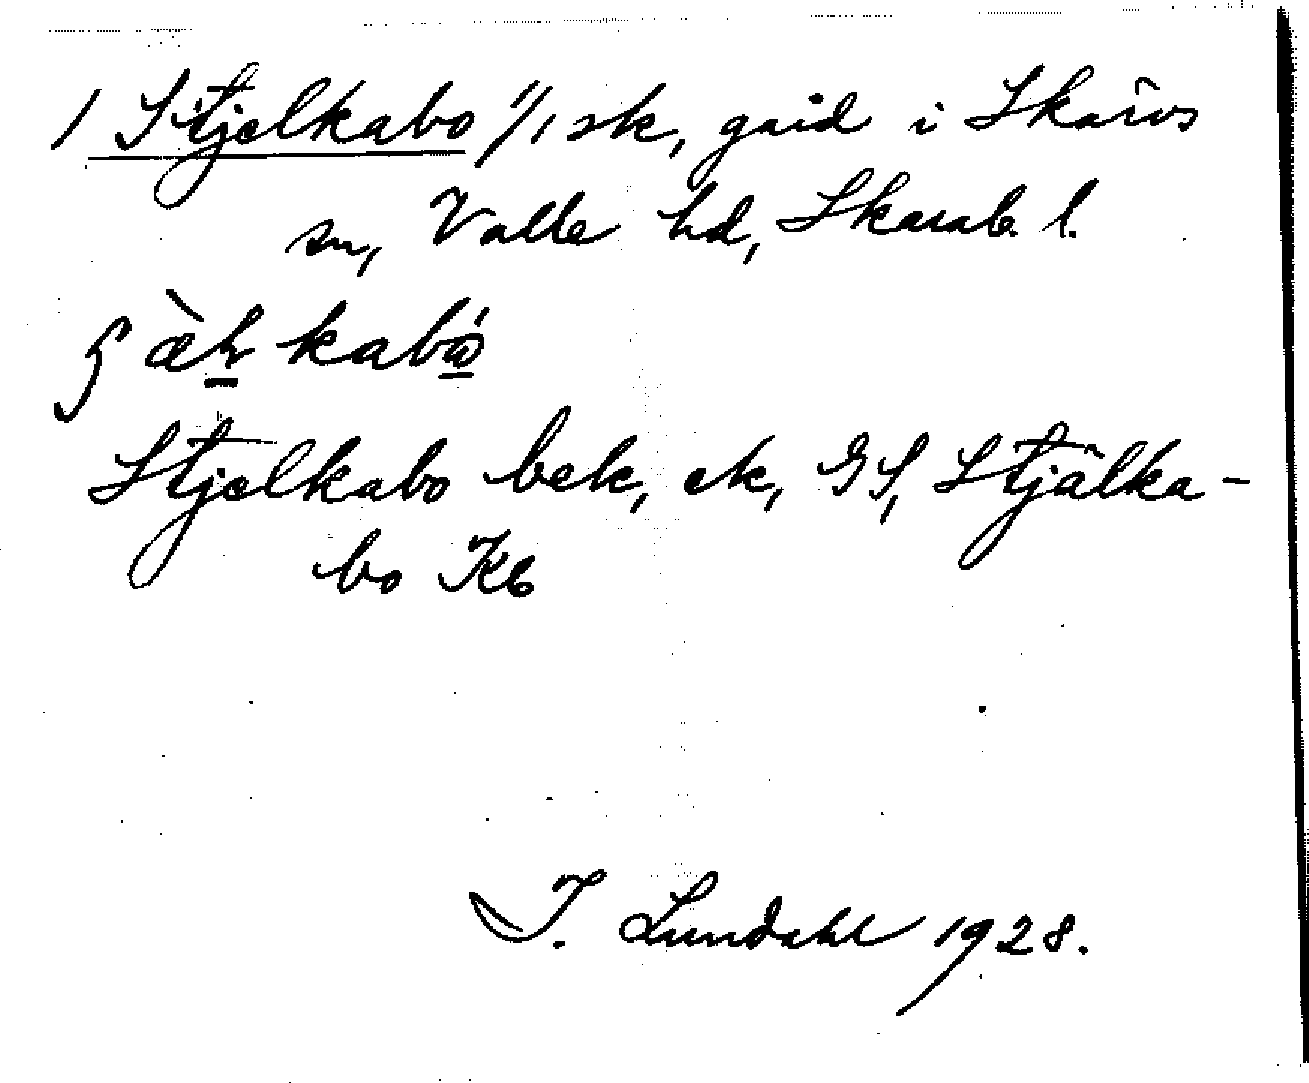 1 Stjelkabo 1/1 sk, gård i Skärvs
sn, Valle hd, Skarab. l.
kabɷ́
Stjelkabo bek, ek, GS, Stjälka-
bo Kb
I. Lundahl 1928.